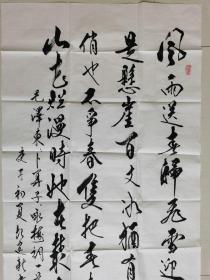 風雨送春歸飛雪迎
是懸崖百丈冰猶有
俏也不爭春隻把春
山花爛漫時她在叢
毛澤東卜算子詠梅詞
庚子初夏